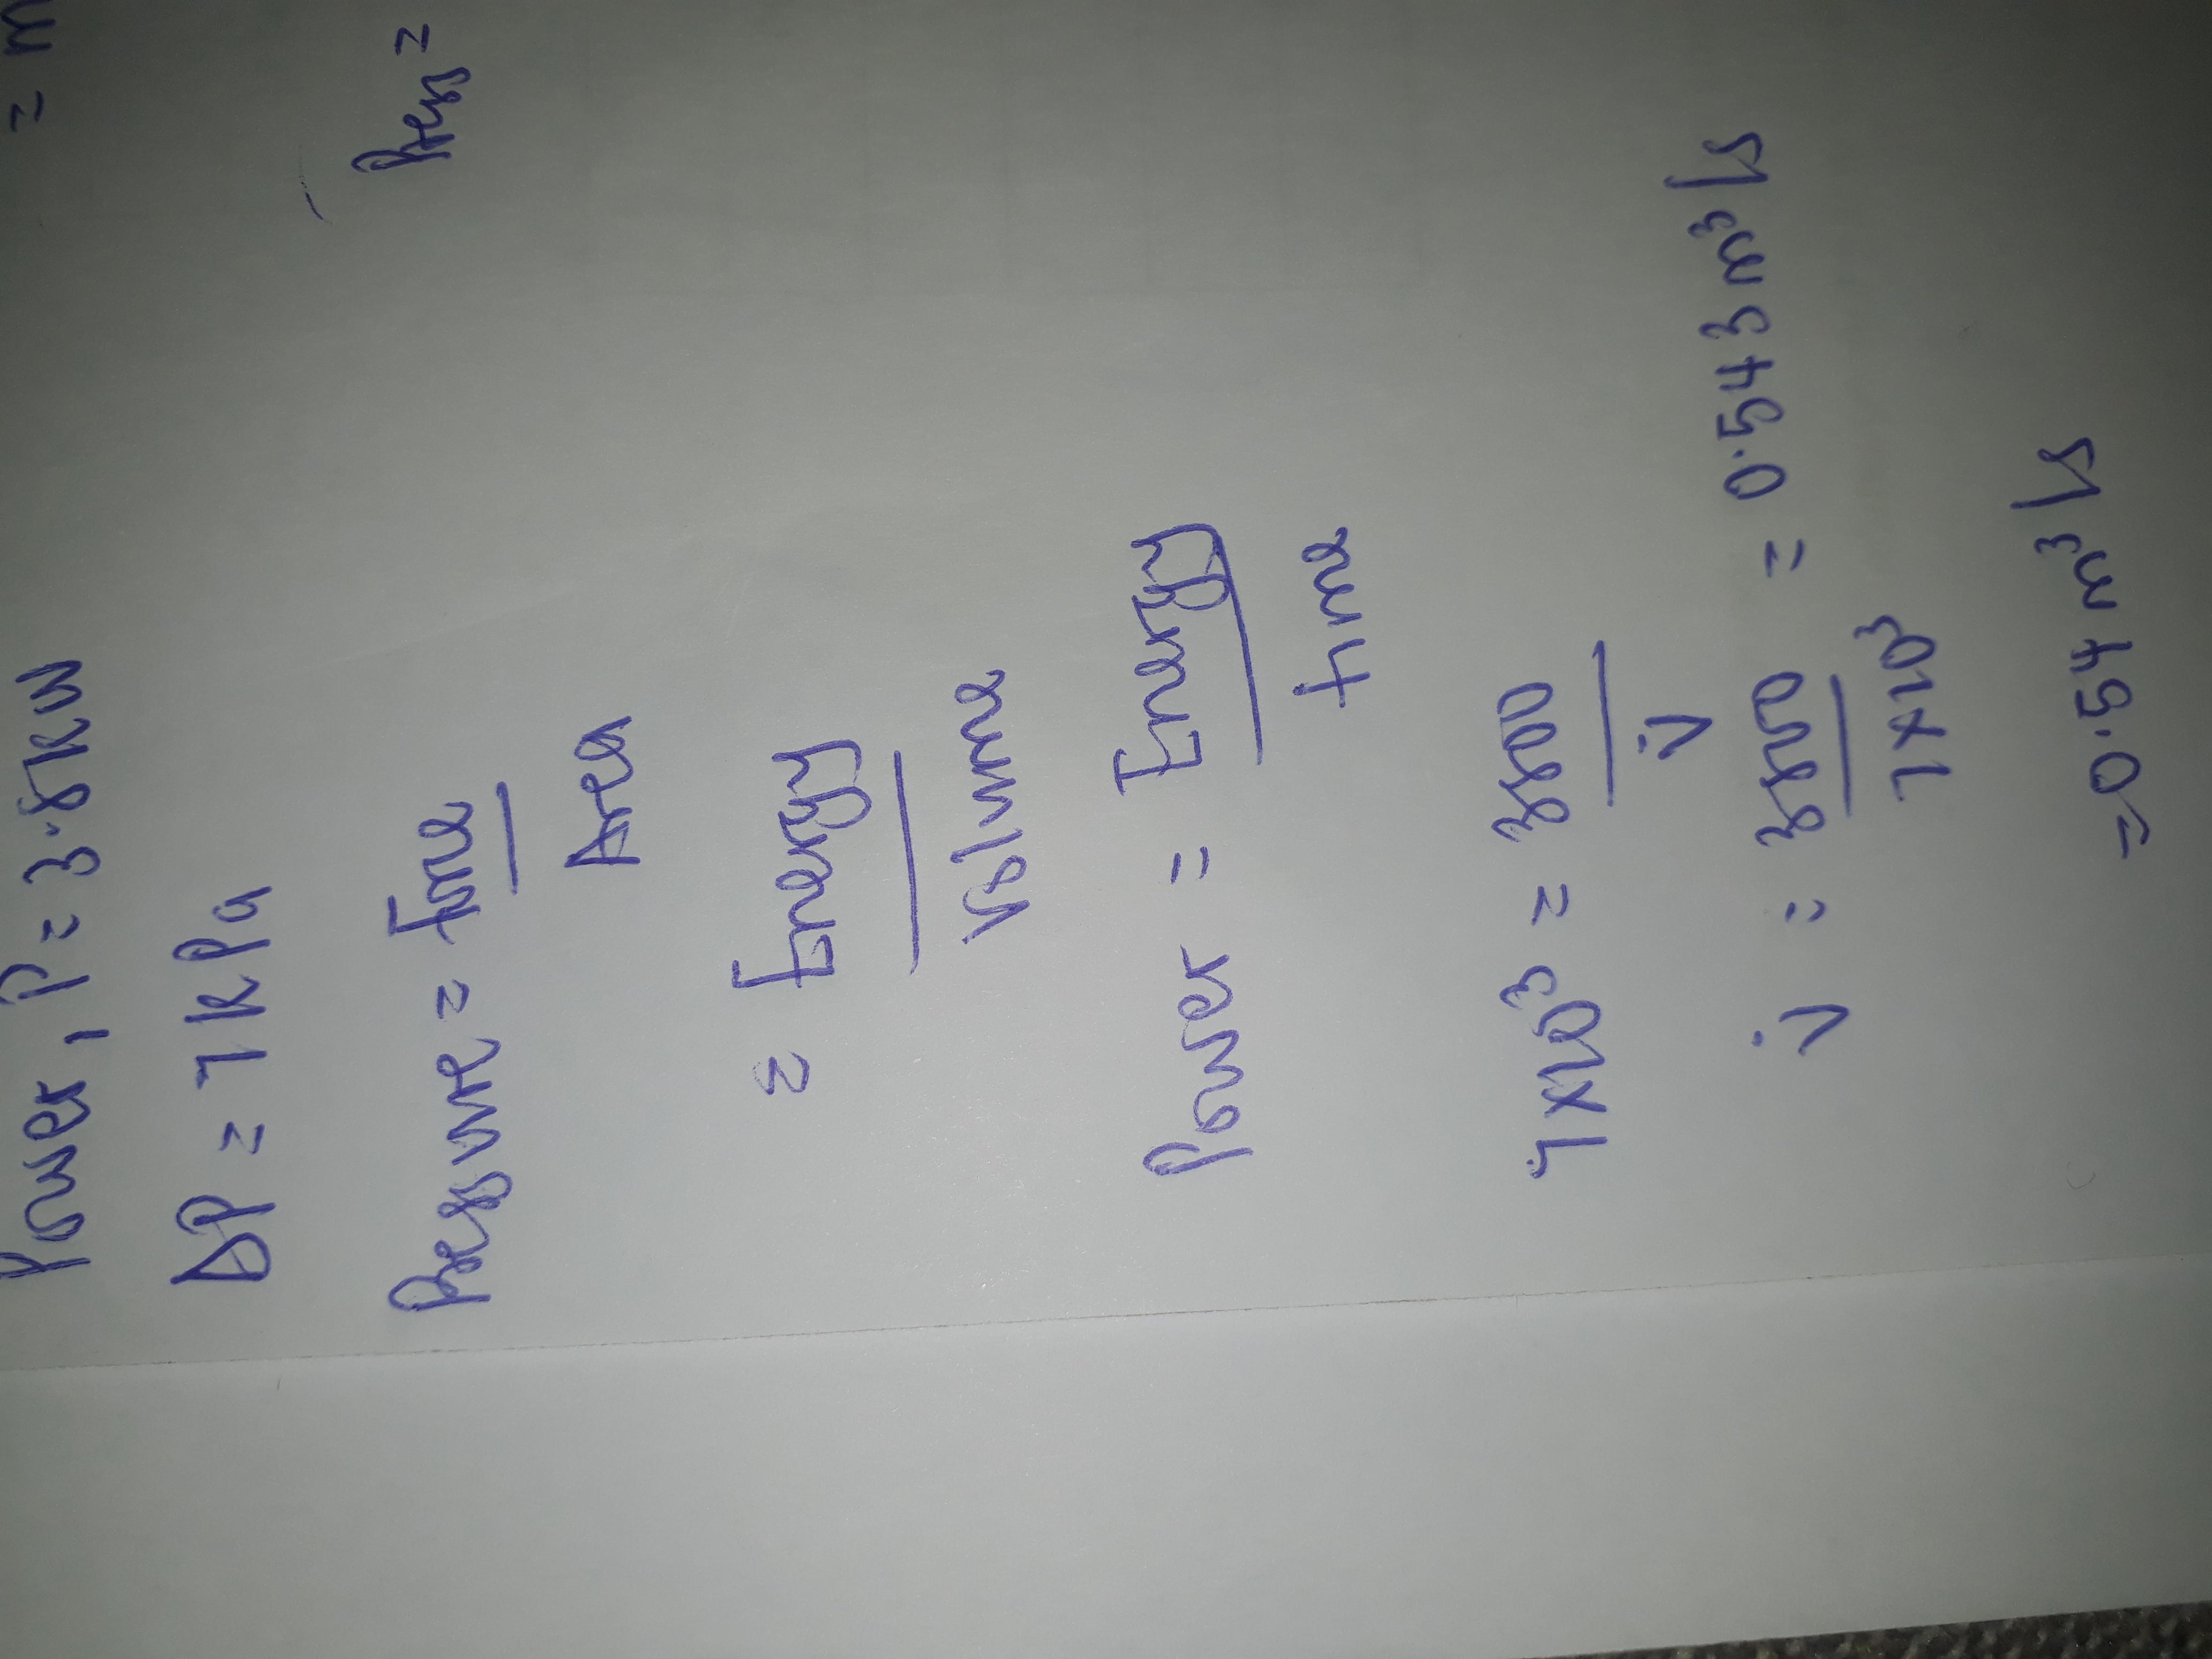 Power, P = 3.8kW
ΔP = 7kPa
Pressure = Force
Area
= Energy
Volume
Power = Energy
time
7x10³ = 3800
V̇
V̇ = 3800 = 0.543 m³/s
7x10³
= 0.54 m³/s
= m